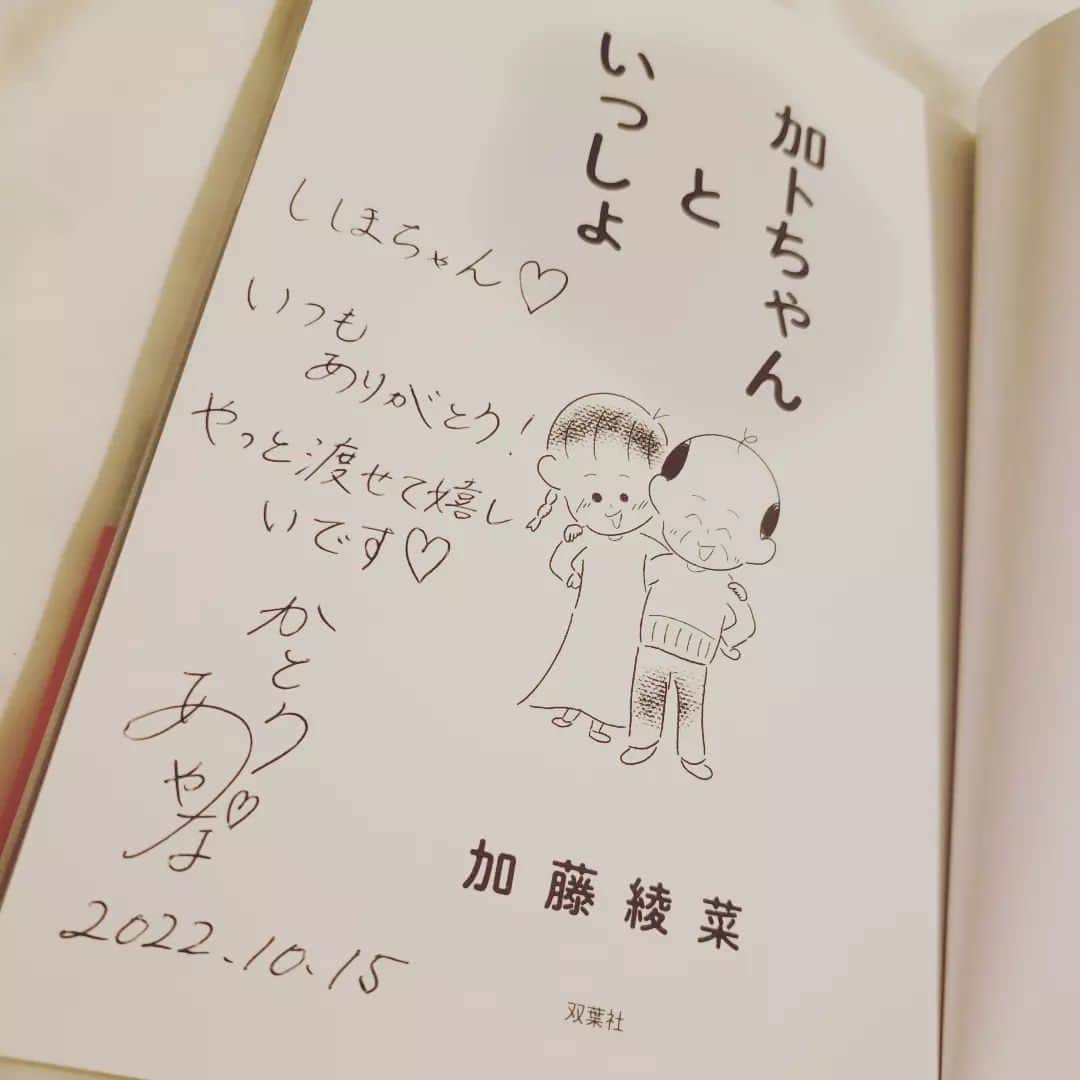 加トちゃん
と
いっしょ
ししほちゃん♡
いつも
ありがとう!
やっと渡せて嬉し
いです♡
かとう
あやな♡
2022.10.15
加藤綾菜
双葉社